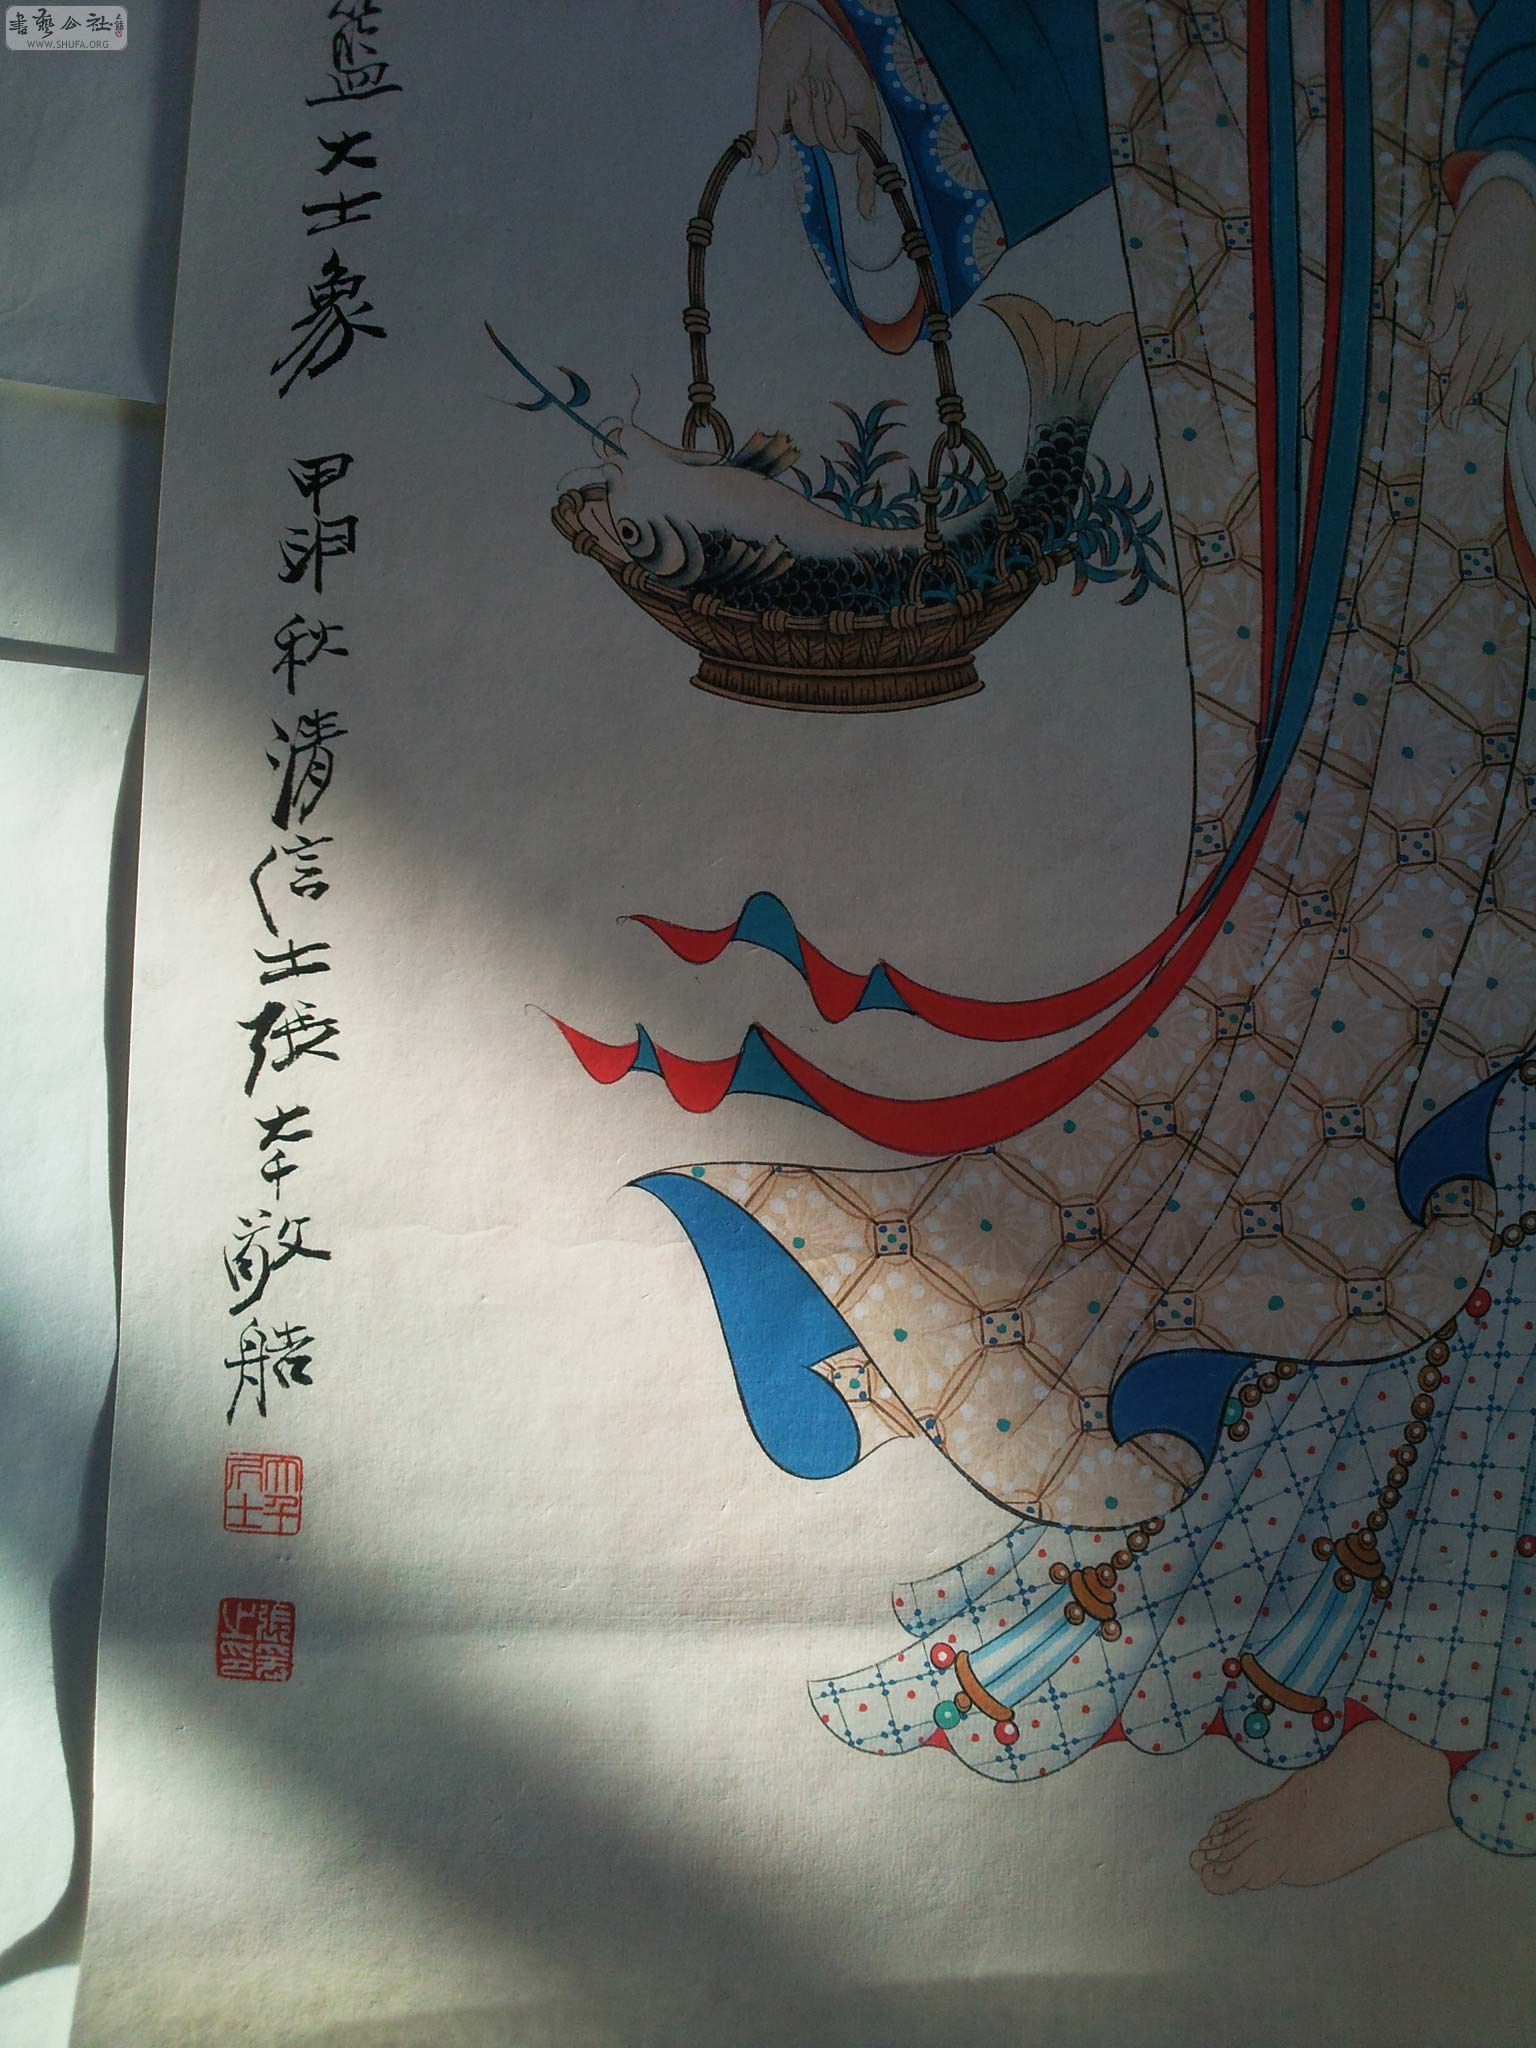 書藝公社
WWW.SHUFA.ORG
籃大士象 甲申秋清信士張大千敬造
大千居士
張爰之印